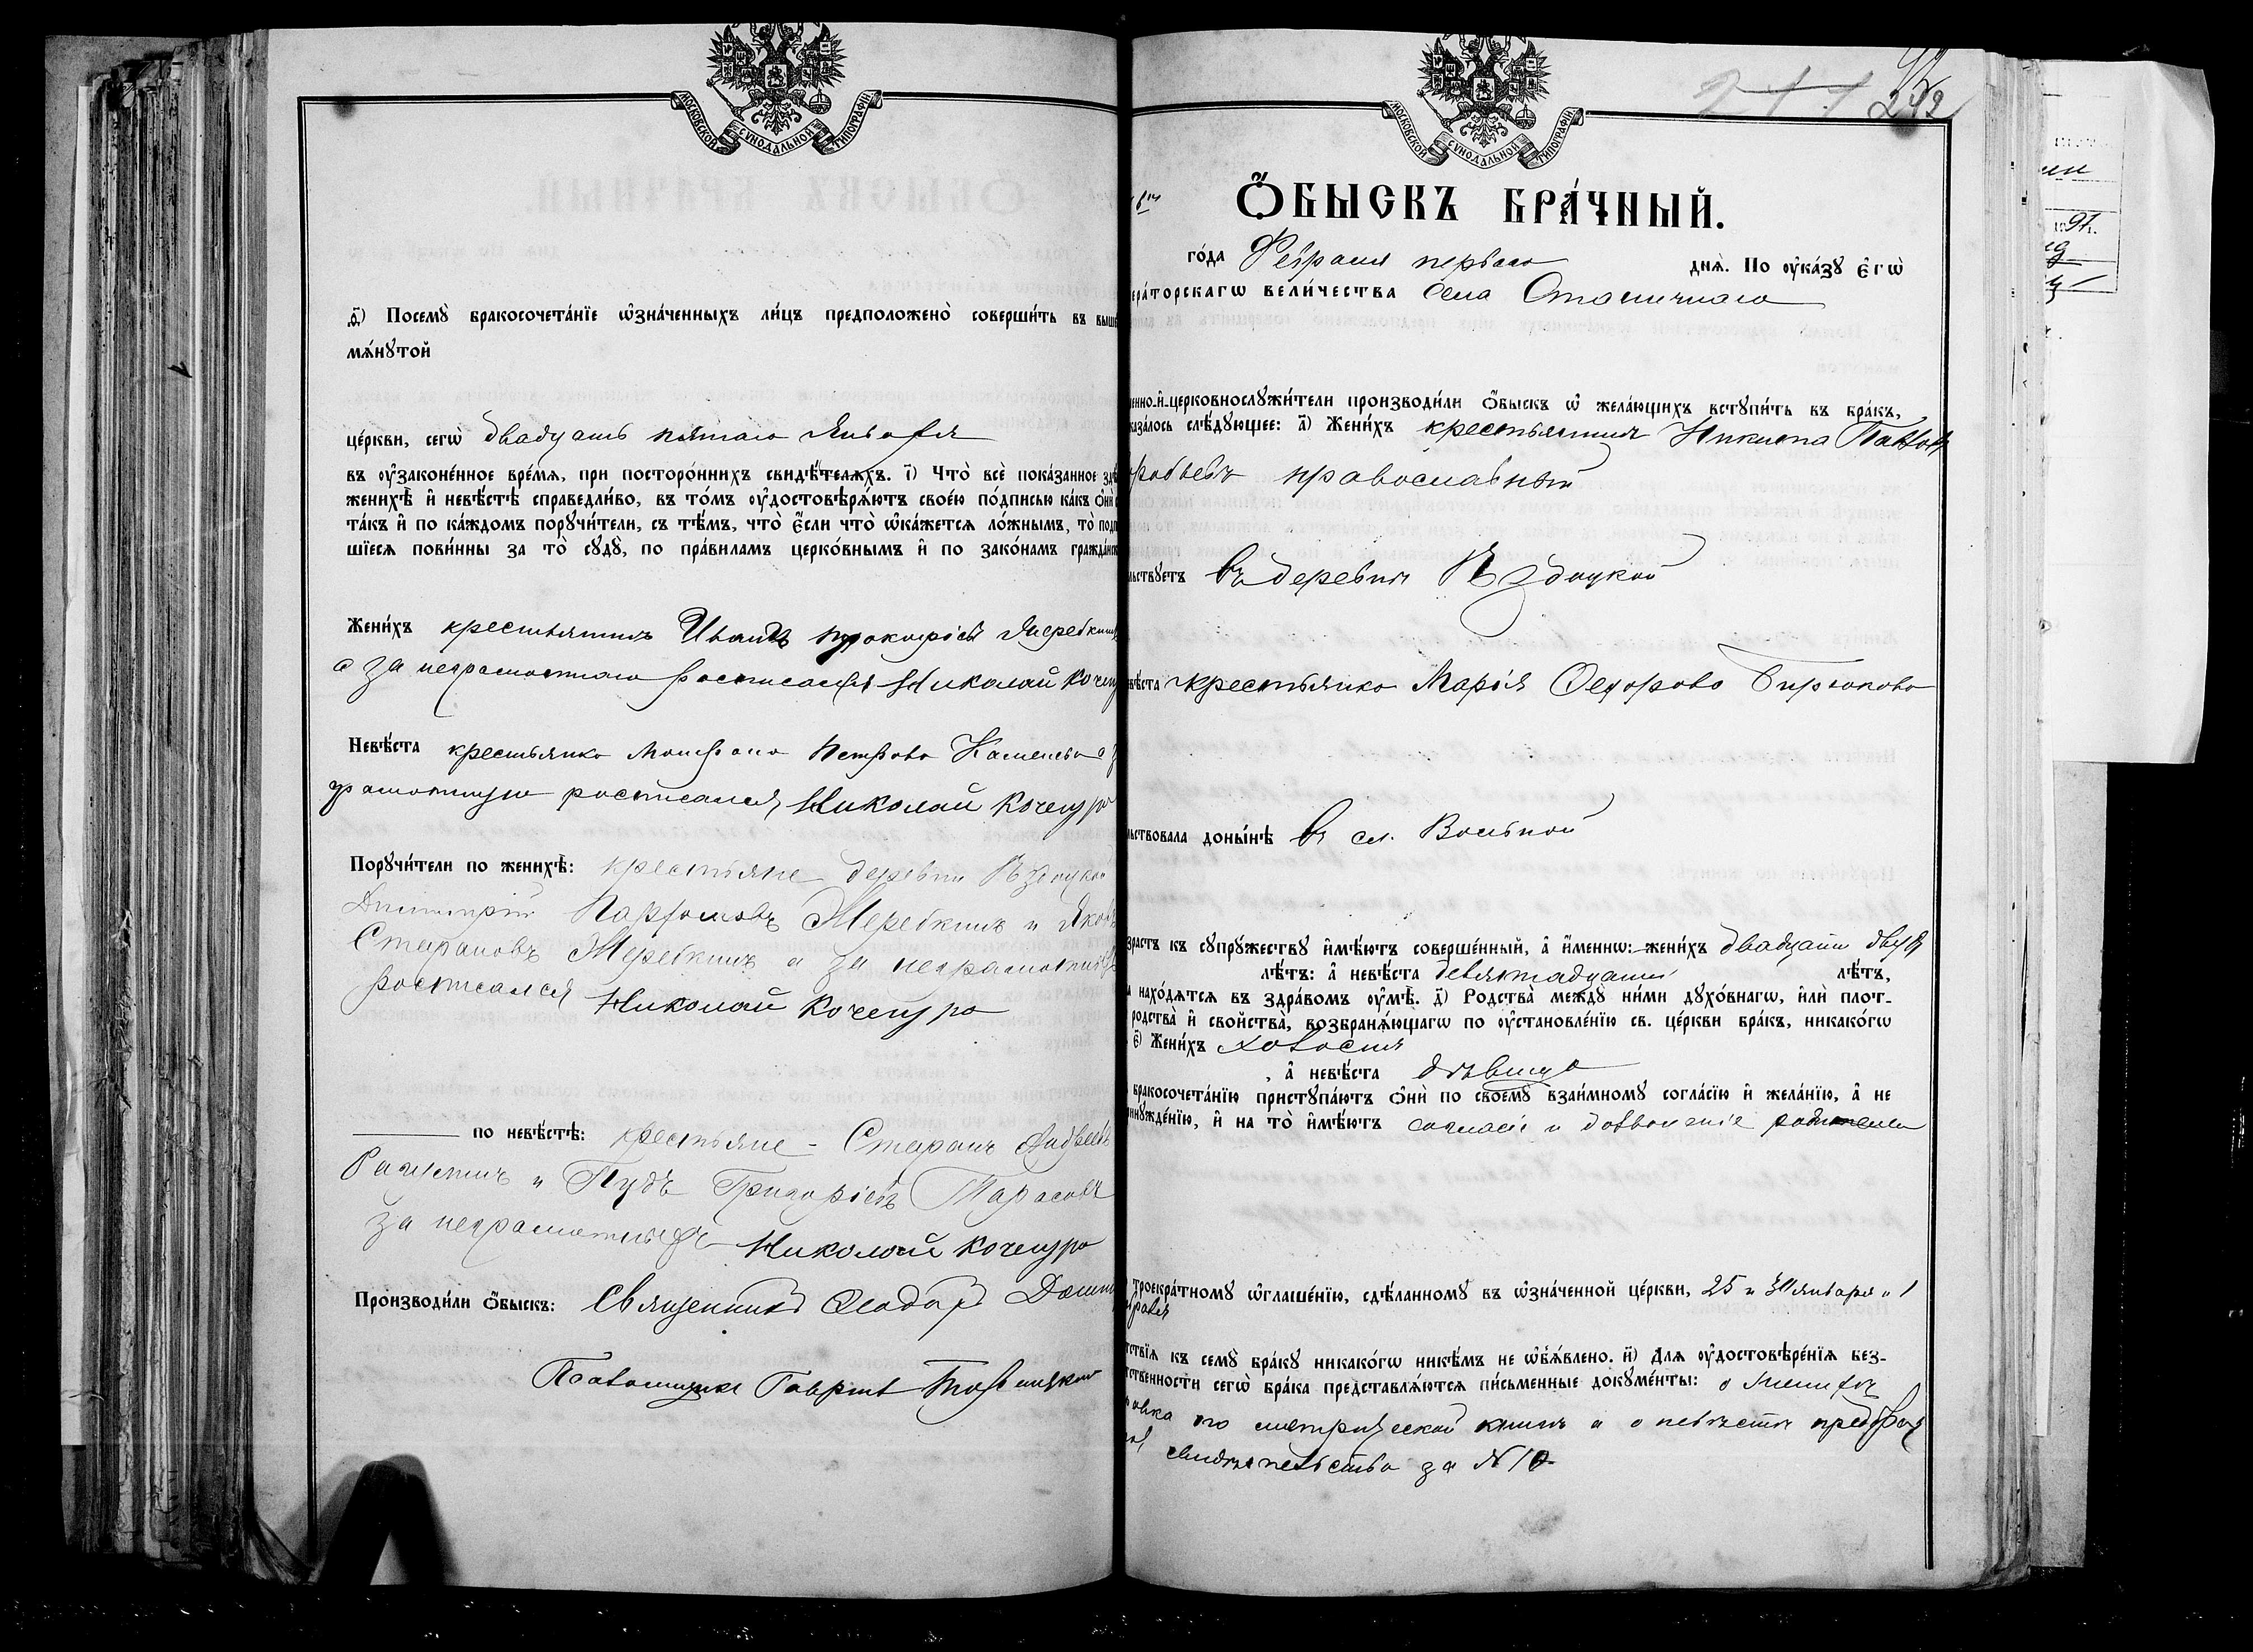 МОСКОВСКОЙ СѴНОДАЛЬНОЙ ТИПОГРАФІИ
д҃) Посемꙋ̀ бракосочета́нїе ѡ҆зна́ченныхъ ли́цъ предположено̀ соверши́ть въ выше
мѧ́нꙋтой
це́ркви, сегѡ̀ двадцать пятаго Января
въ ᲂу҆законе́нное вре́мѧ, при посторо́ннихъ свидѣ́телѧхъ. і҃) Что̀ всѐ пока́занное здѣ
женихѣ̀ и҆ невѣ́стѣ справедли́во, въ то́мъ ᲂу҆достовѣрѧ́ютъ свое́ю по́дписью ка́къ ѻ҆нѝ
та́къ и҆ по ка́ждомъ порꙋчи́тели, съ тѣ́мъ, что̀ є҆́сли что̀ ѡ҆ка́жетсѧ ло́жнымъ, то̀ подп
шїесѧ пови́нны за то̀ сꙋдꙋ̀, по пра́виламъ церко́внымъ и҆ по зако́намъ гражда́нск
Жени́хъ крестьянинъ Иванъ Прокофіевъ Жеребкинъ
а за неграмотнаго росписался Николай Кочегура
Невѣ́ста крестьянка Матрона Петрова Каменева а
грамотную росписался, Николай Кочегура
Порꙋчи́тели по женихѣ̀: крестьяне деревни Вздоцкой
Димитрій Парфеновъ Жеребкинъ и Яковъ
Стефановъ Жеребкинъ а за неграмотныхъ
росписался Николай Кочегура
по невѣ́стѣ: крестьяне - Стефанъ Андреевъ
и Пудъ Григоріевъ Тарасовъ
за неграмотныхъ Николай Кочегура
Производи́ли ѻ҆́быскъ: Священникъ Ѳеодоръ
Псаломщикъ Гавріилъ
МОСКОВСКОЙ СѴНОДАЛЬНОЙ ТИПОГРАФІИ
242
Ѻ҆БЫСКЪ БРА́ЧНЫЙ.
го́да Февраля перваго днѧ̀. По ᲂу҆ка́зꙋ є҆гѡ̀
ера́торскагѡ вели́чества села Становичнаго
енно-и҆-церковнослꙋжи́тели производи́ли ѻ҆́быскъ ѡ҆ жела́ющихъ встꙋпи́ть въ бра́къ,
каза́лось слѣ́дꙋющее: а҃) Жени́хъ крестьянинъ Никита Павловъ
робьевъ православный
льствꙋетъ въ деревни Вздоцкой
вѣ́ста крестьянка Марія Ѳедорова Бирюкова
льствовала доны́нѣ въ сл. Вольной
зрастъ къ сꙋпрꙋ́жествꙋ и҆мѣ́ютъ соверше́нный, а҆ и҆́меннѡ: жени́хъ двадцати двухъ
лѣ́тъ: а҆ невѣ́ста девятнадцати лѣ́тъ,
нахо́дѧтсѧ въ здра́вомъ ᲂу҆мѣ̀. д҃) Родства̀ междꙋ̀ ни́ми дꙋхо́внагѡ, и҆лѝ плот-
родства̀ и҆ свойства̀, возбранѧ́ющагѡ по ᲂу҆становле́нїю св. це́ркви бра́къ, никако́гѡ
є҃) Жени́хъ холостъ
, а҆ невѣ́ста дѣвица
бракосочета́нїю пристꙋпа́ютъ ѻ҆нѝ по своемꙋ̀ взаи́мномꙋ согла́сїю и҆ жела́нїю, а҆ не
инꙋжде́нїю, и҆ на то̀ и҆мѣ́ютъ согласіе и дозволеніе родителей
троекра́тномꙋ ѡ҆глаше́нїю, сдѣ́ланномꙋ въ ѡ҆зна́ченной це́ркви, 25 и 30 января и 1
враля
тствїѧ къ семꙋ̀ бра́кꙋ никако́гѡ никѣ́мъ не ѡ҆б̾ѧ́влено. и҃) Длѧ ᲂу҆достовѣре́нїѧ без-
тственности сегѡ̀ бра́ка представлѧ́ютсѧ пи́сьменные докꙋме́нты: о женихѣ
равка по метрической книгѣ а о невѣстѣ предбрач
свидѣтельство за № 10